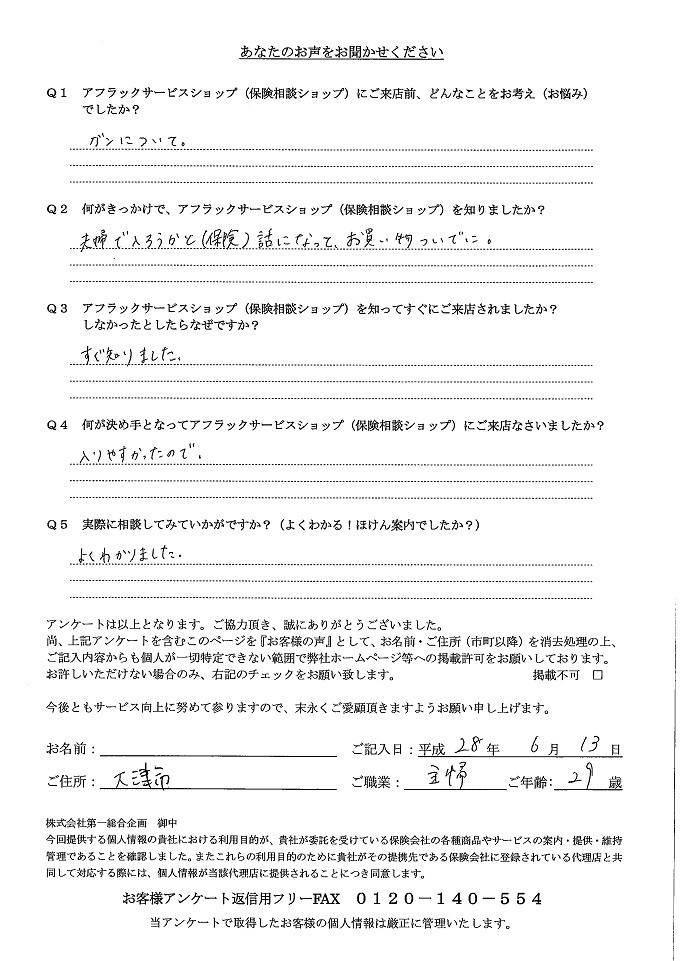 あなたのお声をお聞かせください
Q1 アフラックサービスショップ（保険相談ショップ）にご来店前、どんなことをお考え（お悩み）
でしたか？
ガンについて。
Q2 何がきっかけで、アフラックサービスショップ（保険相談ショップ）を知りましたか？
夫婦で入ろうかと（保険）話になって、お買い物ついでに。
Q3 アフラックサービスショップ（保険相談ショップ）を知ってすぐにご来店されましたか？
しなかったとしたらなぜですか？
すぐ知りました。
Q4 何が決め手となってアフラックサービスショップ（保険相談ショップ）にご来店なさいましたか？
入りやすかったので。
Q5 実際に相談してみていかがですか？（よくわかる！ほけん案内でしたか？）
よくわかりました。
アンケートは以上となります。ご協力頂き、誠にありがとうございました。
尚、上記アンケートを含むこのページを『お客様の声』として、お名前・ご住所（市町以降）を消去処理の上、
ご記入内容からも個人が一切特定できない範囲で弊社ホームページ等への掲載許可をお願いしております。
お許しいただけない場合のみ、右記のチェックをお願い致します。 掲載不可 □
今後ともサービス向上に努めて参りますので、末永くご愛顧頂きますようお願い申し上げます。
お名前： ご記入日：平成 28 年 6 月 13 日
ご住所： 大津市 ご職業： 主婦 ご年齢： 29 歳
株式会社第一総合企画 御中
今回提供する個人情報の貴社における利用目的が、貴社が委託を受けている保険会社の各種商品やサービスの案内・提供・維持
管理であることを確認しました。またこれらの利用目的のために貴社がその提携先である保険会社に登録されている代理店と共
同して対応する際には、個人情報が当該代理店に提供されることにつき同意します。
お客様アンケート返信用フリーFAX 0120－140－554
当アンケートで取得したお客様の個人情報は厳正に管理いたします。